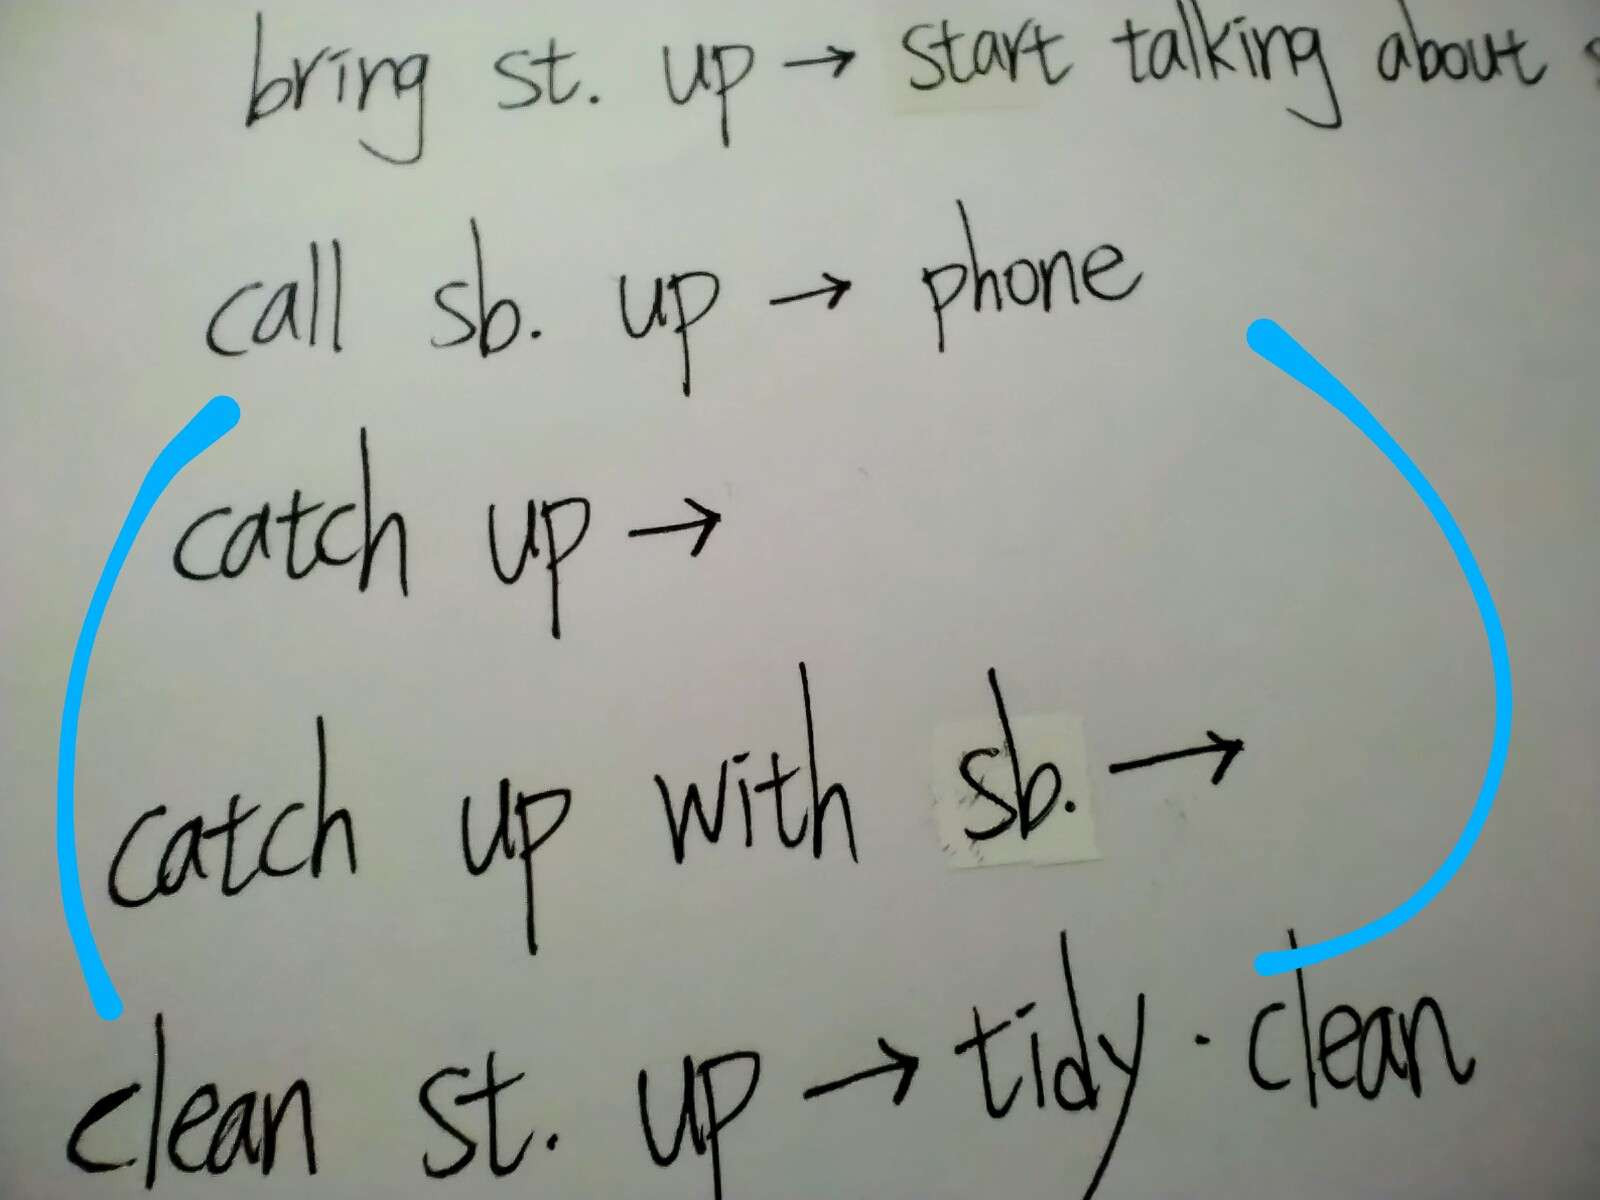 bring st. up → start talking about
call sb. up → phone
catch up →
catch up with sb. →
clean st. up → tidy · clean